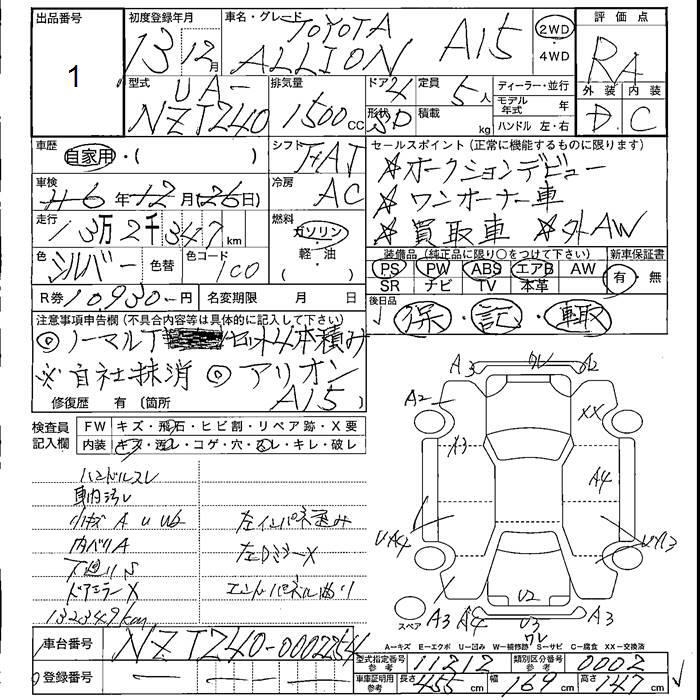 出品番号 1
初度登録年月 13 12月
車名・グレード TOYOTA
ALLION A15
2WD・4WD
評価点 RA
外装 D 内装 C
型式 UA-
NZT240
排気量 1500cc
ドア 4 形状 SD
定員 5人 積載 kg
ディーラー・並行
モデル年式 年
ハンドル 左・右
車歴 自家用・( )
シフト FAT
車検 H6年12月(26日)
冷房 AC
走行 13万2千347km
燃料 ガソリン・軽・油 ( )
色 シルバー 色替 色コード 1C0
R券 10930円 名変期限 月 日
セールスポイント(正常に機能するものに限ります)
☆オークションデビュー
☆ワンオーナー車
☆買取車 ☆外AW
装備品(純正品に限り○をつけて下さい) 新車保証書
PS PW ABS エアB AW 有・無
SR ナビ TV 本革
後日品 保・記・取
注意事項申告欄(不具合内容等は具体的に記入して下さい)
◎ノーマルT 4本積み
※自社抹消 ◎アリオン
A15
修復歴 有(箇所 )
検査員記入欄
FW キズ・飛石・ヒビ割・リペア跡・X要
内装 キズ・汚レ・コゲ・穴・スレ・キレ・破レ
ハンドルスレ
車内汚レ
小キズ A U U2
内ハリA
下廻りS
ドアミラーX
132349km
左インパネ歪み
左DミラーX
エンドパネル曲り
A3 ワレ A2
A2 XX
A3 A4
UA4 U3
U2
A3 A4 U3 A3
ワレ
スペア
A-キズ E-エクボ U-凹み W-補修跡 S-サビ C-腐食 XX-交換済
車台番号 NZT240-0002254
登録番号 — — — —
型式指定番号 参考 11212 類別区分番号 参考 0002
車庫証明用 参考 長さ 455cm 幅 169cm 高さ 147cm